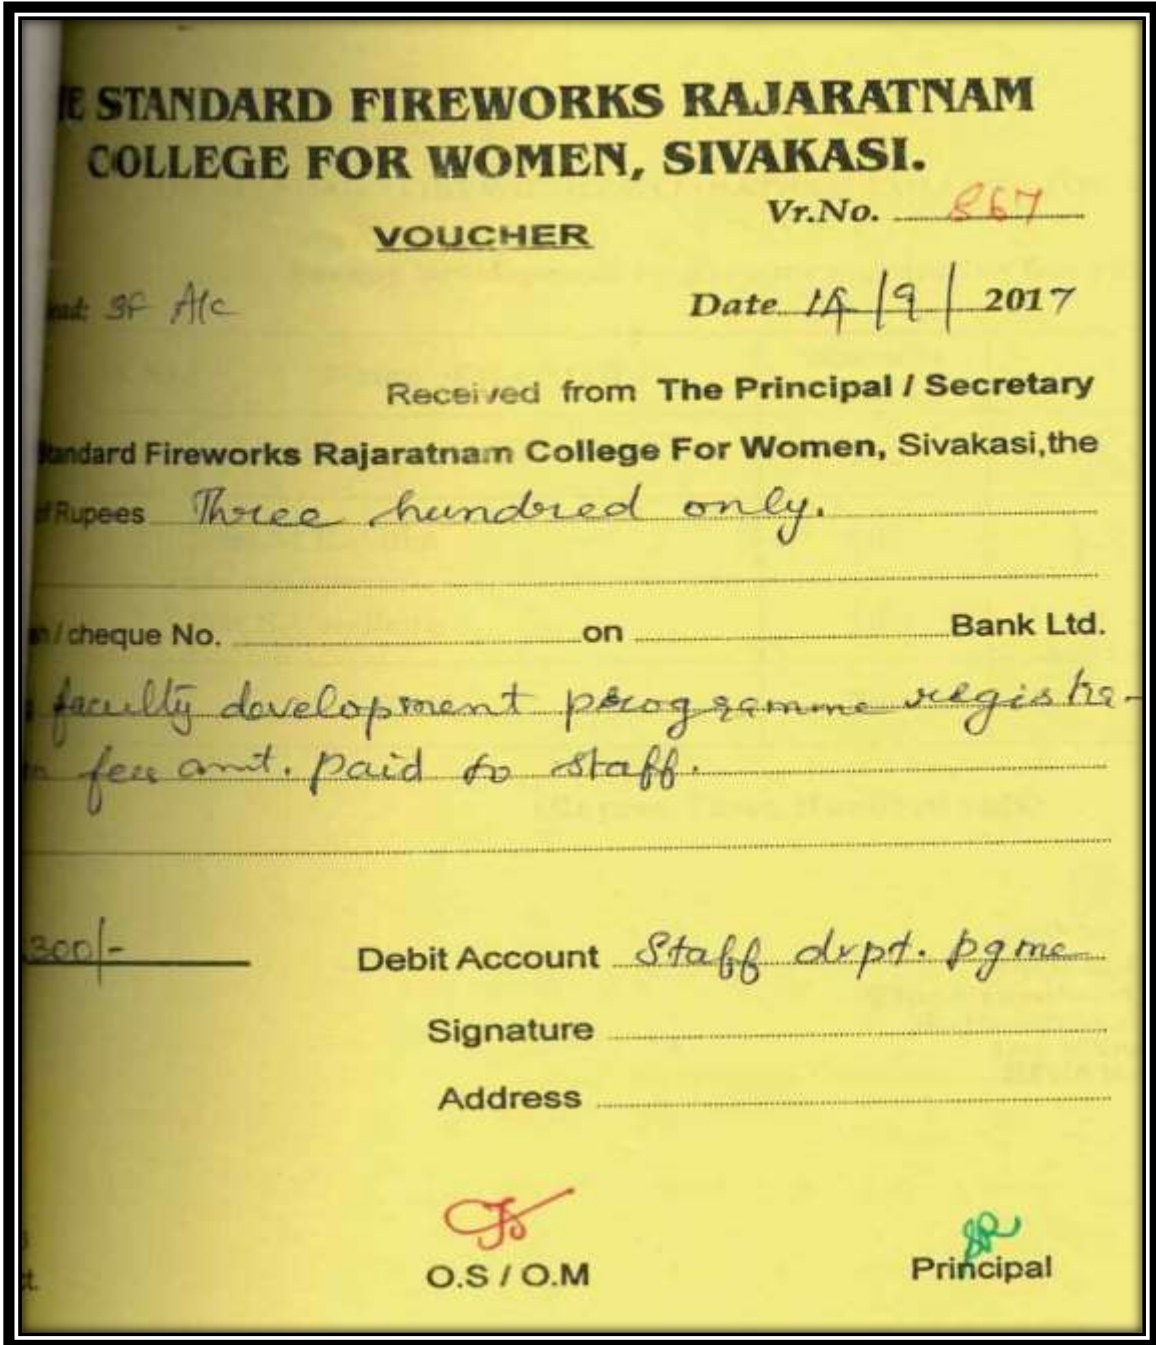 E STANDARD FIREWORKS RAJARATNAM
COLLEGE FOR WOMEN, SIVAKASI.
Vr.No. 867
VOUCHER
ead: SF A/c
Date 14/9/2017
Received from The Principal / Secretary
Standard Fireworks Rajaratnam College For Women, Sivakasi,the
of Rupees Three hundred only.
/ cheque No. on Bank Ltd.
faculty development programme registra-
n fees amt. paid to staff.
300/-
Debit Account Staff dvpt. pgme
Signature
Address
O.S / O.M
Principal